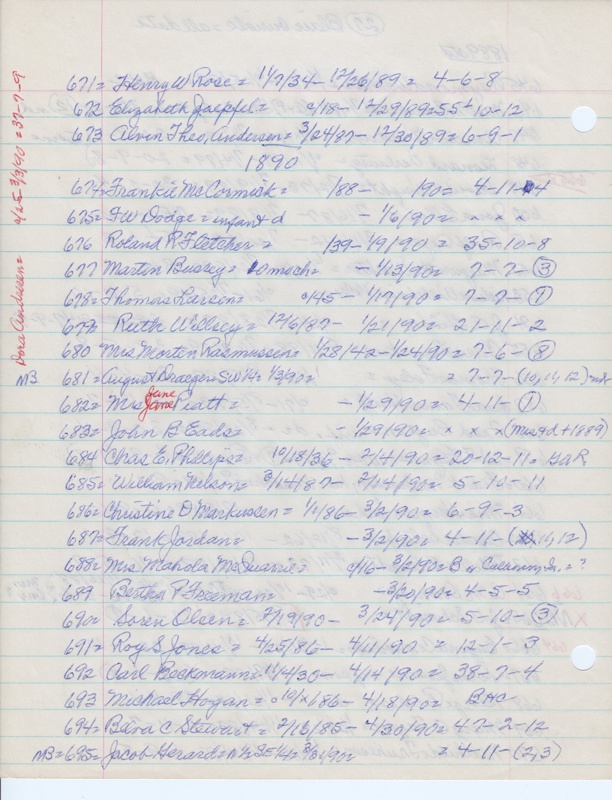 671 = Henry W Rose = 11/7/34 - 12/26/89 = 4-6-8
672 Elizabeth Zaepfel = c/18 - 12/29/89 = 55-10-12
673 Alvin Theo. Andersen = 3/24/87 - 12/30/89 = 6-9-1
1890
674 = Frankie McCormick = /88 - /90 = 4-11-4
675 = FW Dodge = infant d - 1/6/90 = x x x
676 Roland R Fletcher = /39 - 1/9/90 = 35-10-8
677 Martin Bussey = 10 mochs - 1/13/90 = 7-7-(3)
678 = Thomas Larson = c/45 - 1/17/90 = 7-7-(1)
679 = Ruth Willsey = 12/6/87 - 1/21/90 = 21-11-2
680 Mrs Morten Rasmussen = 1/28/42 - 1/24/90 = 7-6-(8)
MB 681 = August Draeger = SW 1/4 = 1/3/90 = = 7-7-(10,11,12)
682 = Mrs Jane Piatt = - 1/29/90 = 4-11-(1)
683 = John B Eads = - 1/29/90 = x x x (Miss 9d + 1889)
684 Chas E. Phillips = 10/18/36 - 2/4/90 = 20-12-11 = GAR
685 = William Nelson = 3/14/87 - 2/14/90 = 5-10-11
686 = Christine D Markussen = 1/1/86 - 3/2/90 = 6-9-3
687 = Frank Jordan = - 3/2/90 = 4-11-(11,12)
688 = Mrs Mahola McQuarrie = c/16 - 3/2/90 = B = ?
689 Bertha P Freeman = - 3/20/90 = 4-5-5
690 = Soren Olsen = 2/19/90 - 3/24/90 = 5-10-(3)
691 = Roy S Jones = 4/25/86 - 4/11/90 = 12-1-3
692 Carl Beckmann = 11/4/30 - 4/14/90 = 38-7-4
693 Michael Hogan = c 10/x/86 - 4/18/90 = BAC
694 = Bava C Stewart = 2/16/85 - 4/30/90 = 47-2-12
MB = 695 = Jacob Herard = N 1/2 SE 1/4 = 3/31/90 = = 4-11-(2,3)
Dora Andersen = 4/25 - 3/3/90 = 37-7-9